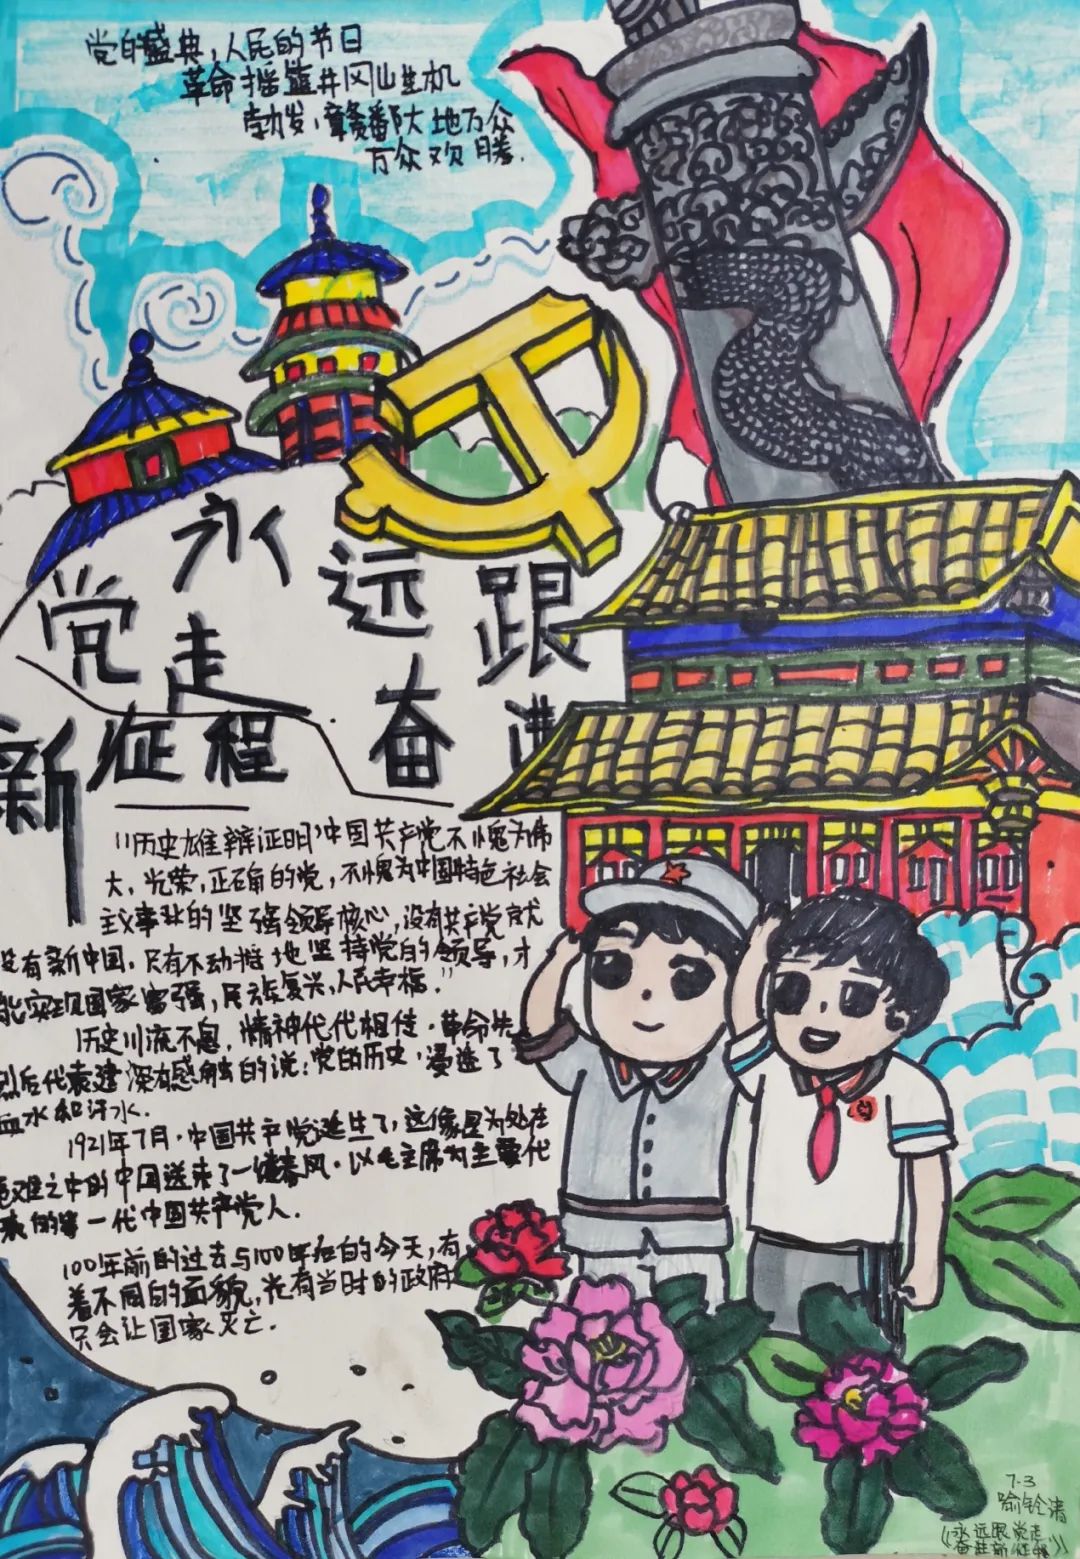 党的盛典，人民的节日
革命摇篮井冈山生机
勃发，赣鄱大地万众
万众欢腾.
永远跟
党走
奋进
新征程
"历史雄辩证明，中国共产党不愧为伟
大、光荣，正确的党，不愧为中国特色社会
主义事业的坚强领导核心，没有共产党就
没有新中国，只有不动摇地坚持党的领导，才
能实现国家富强，民族复兴，人民幸福."
历史川流不息，精神代代相传.革命先
烈后代袁建深有感触的说：党的历史，浸透了
血水和汗水.
1921年7月.中国共产党诞生了，这像是为处在
危难之中的中国送来了一缕春风.以毛主席为主要代
表的第一代中国共产党人.
100年前的过去与100年后的今天，有
着不同的面貌，光有当时的政府
只会让国家灭亡.
7.3
喻铨清
《永远跟党走
奋进新征程》